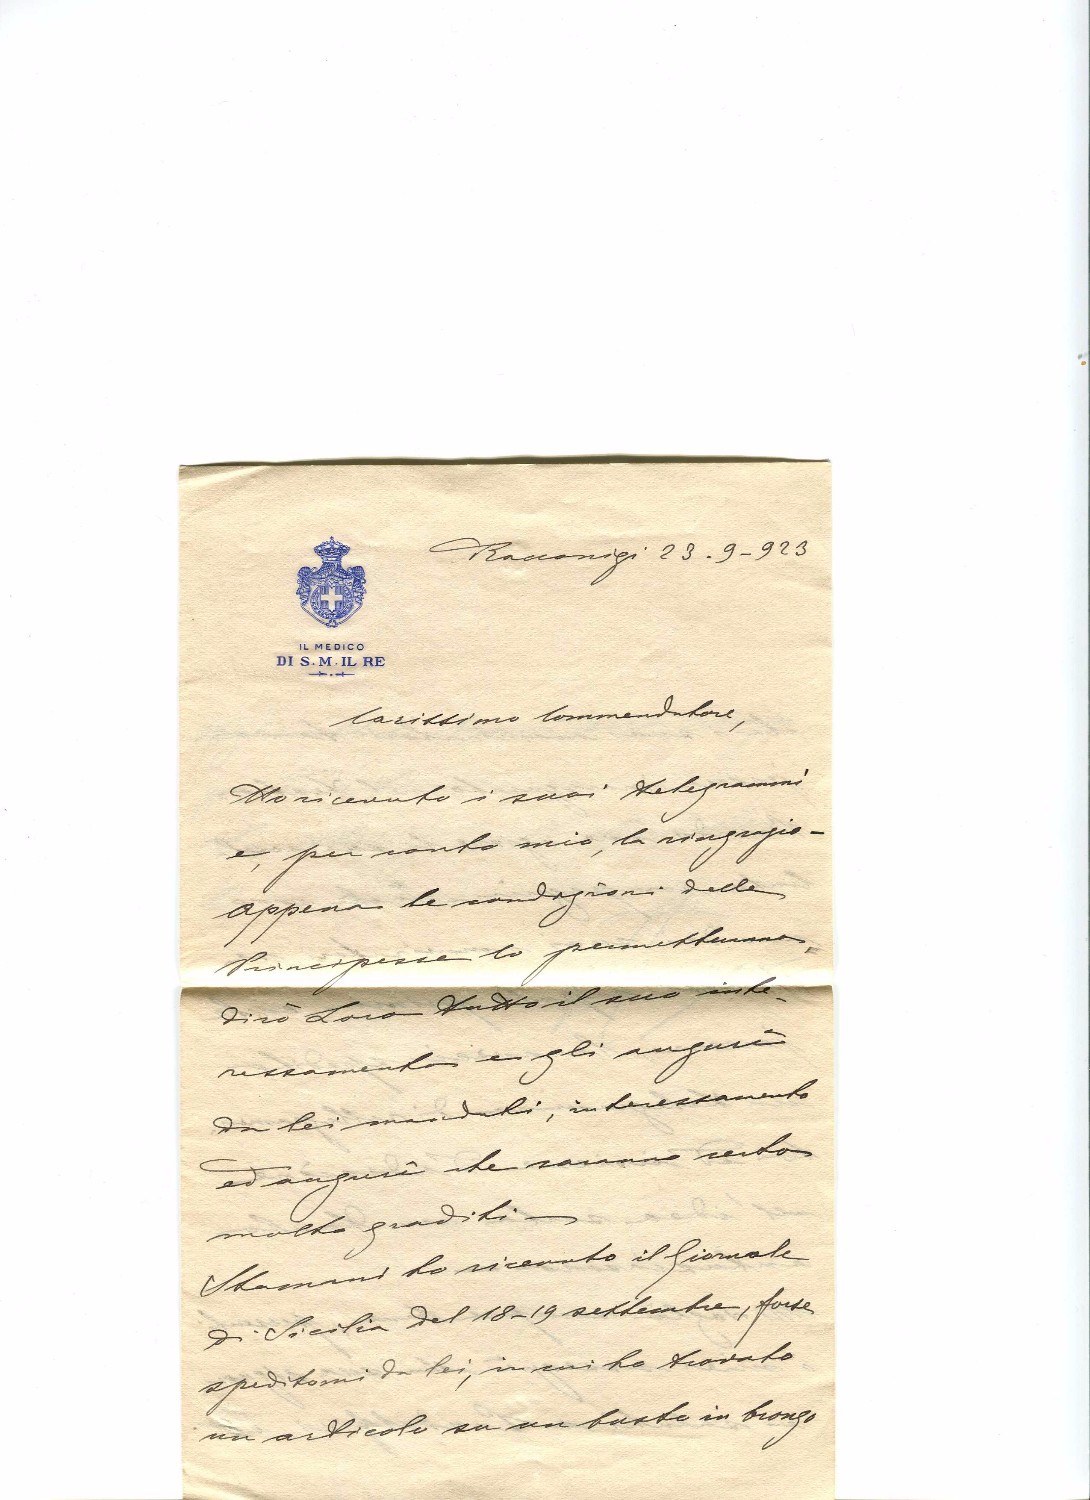 Racconigi 23.9-923
IL MEDICO
DI S.M. IL RE
Carissimo Commendatore,
Ho ricevuto i suoi telegrammi
e, per conto mio, la ringrazio-
Appena le condizioni delle
Principesse lo permetteranno,
dirò Loro tutto il suo inte-
ressamento e gli augurî
da lei mandati, interessamento
ed augurî che saranno certo
molto graditi-
Stamani ho ricevuto il Giornale
di Sicilia del 18-19 settembre, forse
speditomi da lei, in cui ho trovato
un articolo su un busto in bronzo